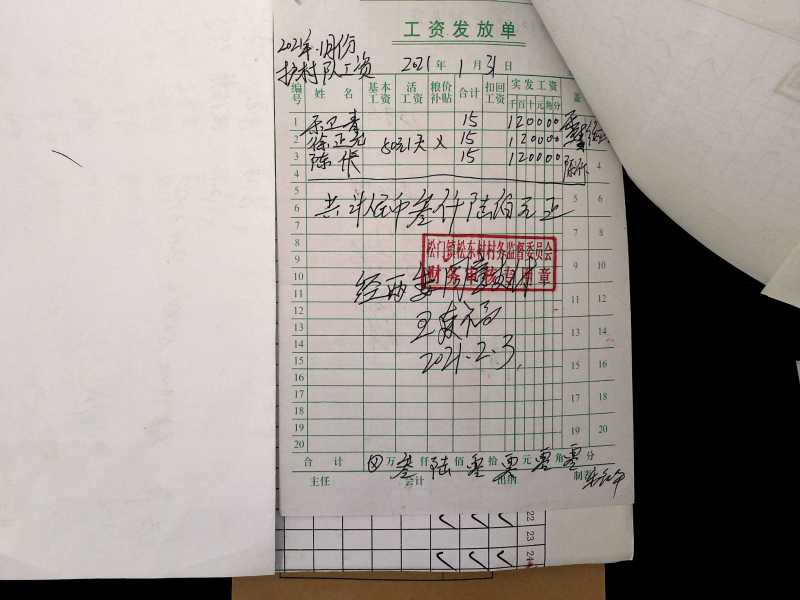 工资发放单
2021年1月份
护村队工资
2021年1月31日
编号 姓名 基本工资 活工资 粮价补贴 合计 扣回工资 实发工资 盖
千百十元角分
1 15 120000
2 徐正 80元1天 × 15 120000
3 陈 15 120000
4 4
5 5
6 共计人民币叁仟陆佰元正 6
7 7
8 8
松门镇松东村村务监督委员会
财务审核专用章
9 9
10 经两委 10
11 11
12 12
13 王 13
14 2021.2.3 14
15 15
16 16
17 17
18 18
19 19
20 20
合计 ⊗万叁仟陆佰零拾零元零角零分
主任 会计 出纳 制表
22
23
24